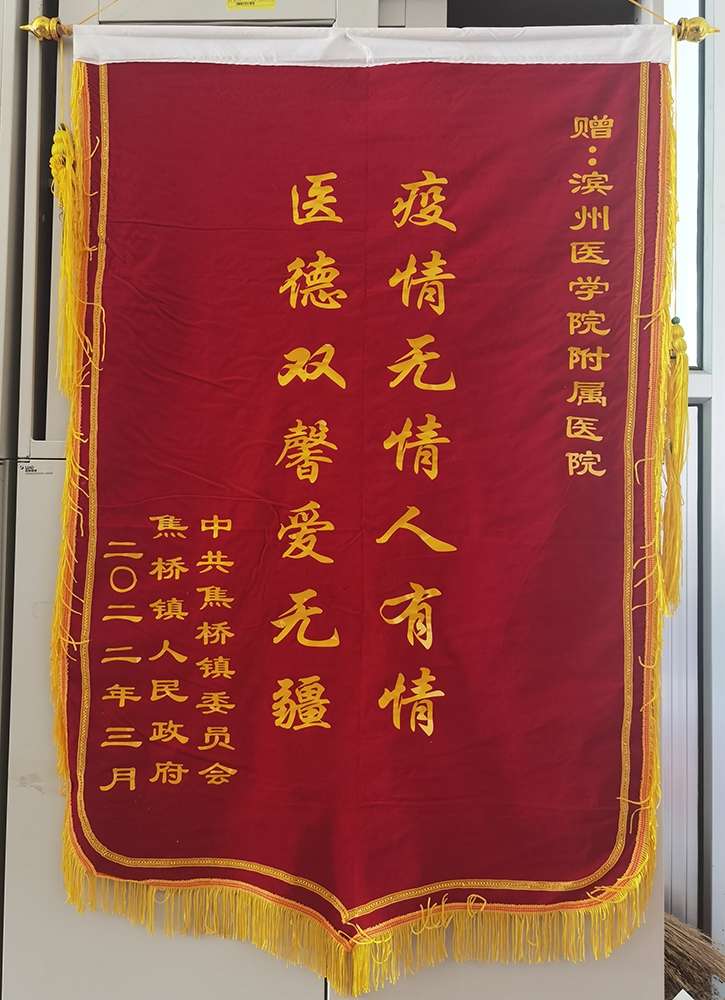 赠：滨州医学院附属医院
疫情无情人有情
医德双馨爱无疆
中共焦桥镇委员会
焦桥镇人民政府
二〇二二年三月